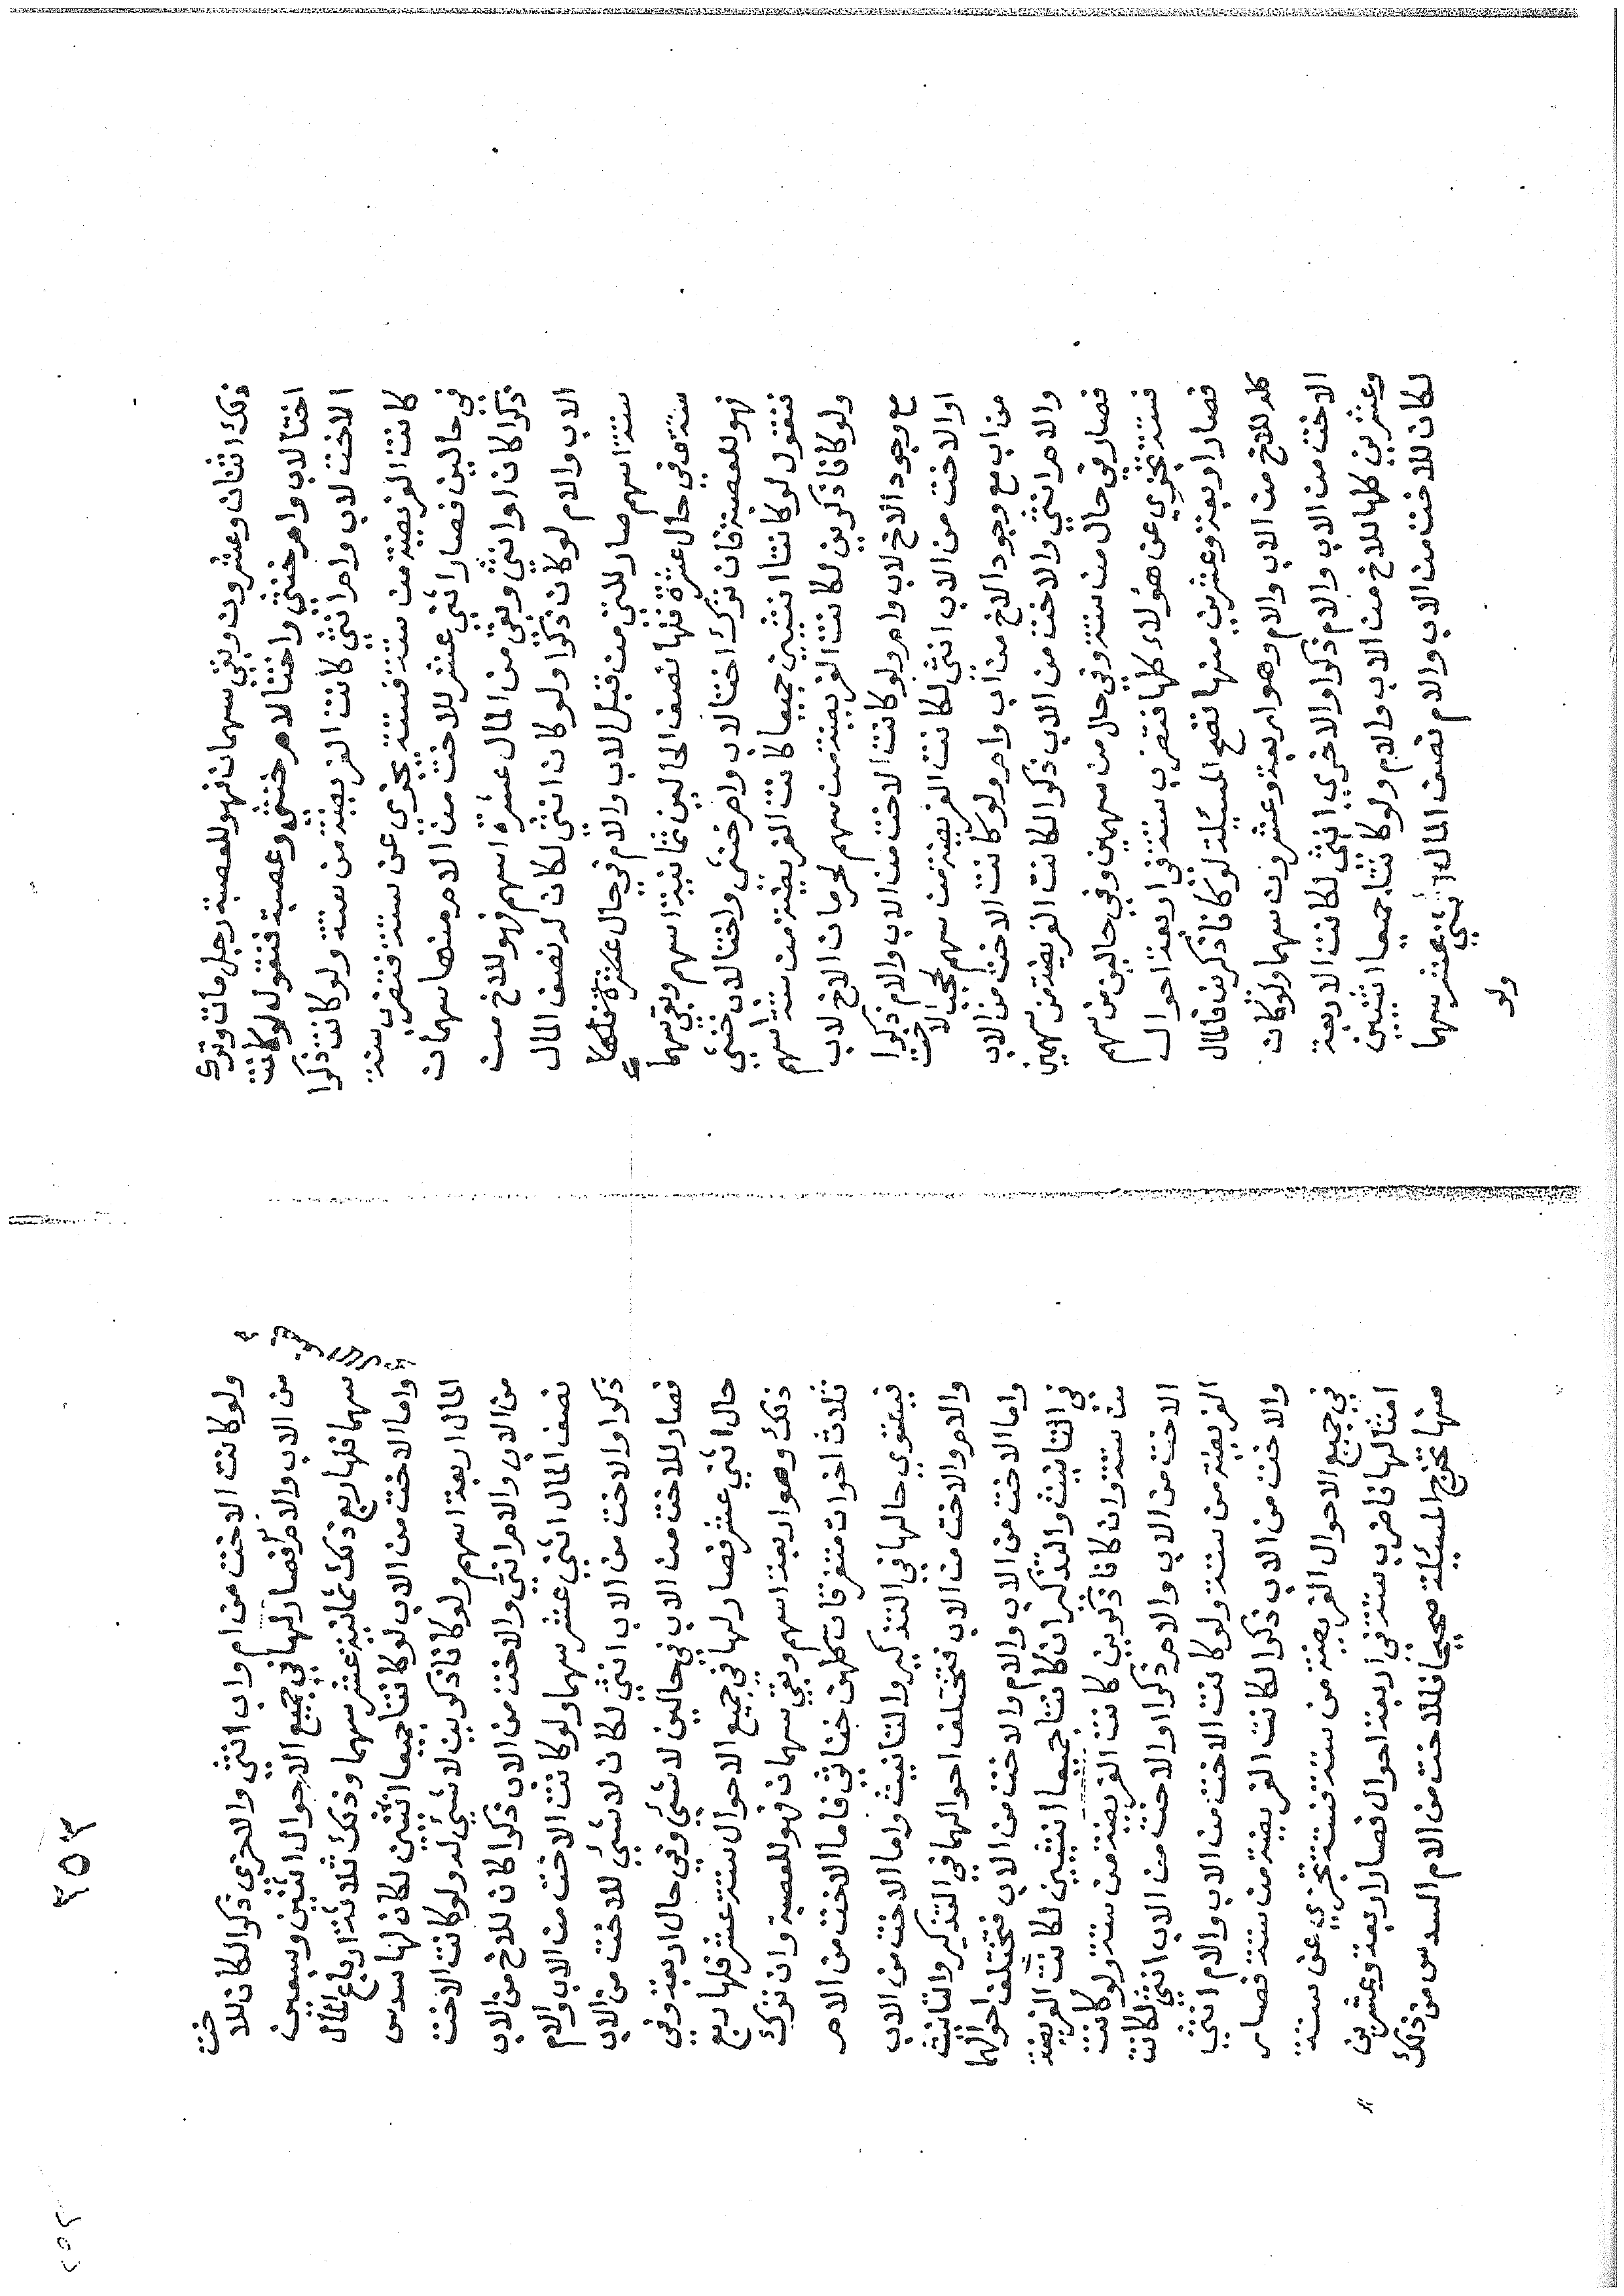 ذلك اثنان وعشرون وبقي سهمان فهو للعصبة رجل مات وترك
اختا لاب وام خنثي واختا لام خنثي وعصبة فنقول لو كانت
الاخت لاب وام انثي كانت الفريضة من ستة ولو كانت ذكرا
كانت الفريضة من ستة فستة تجزي عن ستة فتضرب ستة
في حالين فصار اثني عشر للاخت من الام منها سهمان
ذكرا كان او انثي وبقي من المال عشرة اسهم فهو للاخ من
الاب والام لو كان ذكرا ولو كان انثي لكان له نصف المال
ستة اسهم صار للتي من قبل الاب والام في حال عشرة كلها
ستة وفي حال عشرة فلها نصف الحالين ثمانية اسهم وبقي سهما
فهو للعصبة فان ترك اختا لاب وام خنثي واختا لاب خنثي
فنقول لو كانتا انثيين جميعا كانت الفريضة من ستة اسهم
ولو كانا ذكرين لكانت الفريضة من سهم لحرمان الاخ لاب
مع وجود الاخ لاب وام ولو كانت الاخت من الاب والام ذكرا
او الاخت من الاب انثي لكانت الفريضة من سهم لحجب الاخت
من اب مع وجود الاخ من اب وام ولو كانت الاخت من الاب
والام انثي والاخت من الاب ذكرا لكانت الفريضة من سهمين
فصار في حال من ستة وفي حال من سهمين وفي حالين من سهم
فستة تجزي عن هؤلاء كلها فتضرب ستة في اربعة احوال
فصار اربعة وعشرين منها تصح المسئلة لو كانا ذكرين فالمال
كله للاخ من الاب والام وهو اربعة وعشرون سهما ولو كان
الاخت من الاب والام ذكرا والاخري انثي لكانت الاربعة
وعشرين كلها للاخ من الاب والام ولو كانتا جميعا انثيين
لكان للاخت من الاب والام نصف المال اثني عشر سهما
ولو
ولو كانت الاخت من ام واب انثي والاخري ذكرا لكان للاخت
من الاب والام فصار لها في جميع الاحوال اثنين وسبعين
سهما فلها ربع ذلك ثمانية عشر سهما وذلك ثلاثة ارباع المال
واما الاخت من الاب لو كانتا جميعا انثيين لكان لها سدس
المال اربعة اسهم ولو كانا ذكرين لا شيء له ولو كانت الاخت
من الاب والام انثي والاخت من الاب ذكرا كان للاخ من الاب
نصف المال اثني عشر سهما ولو كانت الاخت من الاب والام
ذكرا والاخت من الاب انثي لكان لا شيء للاخت من الاب
فصار للاخت من الاب في حالين لا شيء وفي حال اربعة وفي
حال اثني عشر فصار لها في جميع الاحوال ستة عشر فلها ربع
ذلك وهو اربعة اسهم وبقي سهمان فهو للعصبة وان ترك
ثلاث اخوات متفرقات كلهن خناثي فاما الاخت من الام
فيستوي حالها في التذكير والتانيث واما الاخت من الاب
والام والاخت من الاب فتختلف احوالهما في التذكير والتانيث
واما الاخت من الاب والام والاخت من الاب فتختلف احوالهما
في التانيث والتذكير ان كانتا جميعا انثيين لكانت الفريضة
من ستة وان كانا ذكرين كانت الفريضة من ستة ولو كانت
الاخت من الاب والام ذكرا والاخت من الاب انثي لكانت
الفريضة من ستة ولو كانت الاخت من الاب والام انثي
والاخت من الاب ذكرا لكانت الفريضة من ستة فصار
في جميع الاحوال الفريضة من ستة فستة تجزي عن ستة
امثالها فاضرب ستة في اربعة احوال فصار اربعة وعشرين
منها تخرج المسئلة صحيحا فللاخت من الام السدس من ذلك
٣٥٣